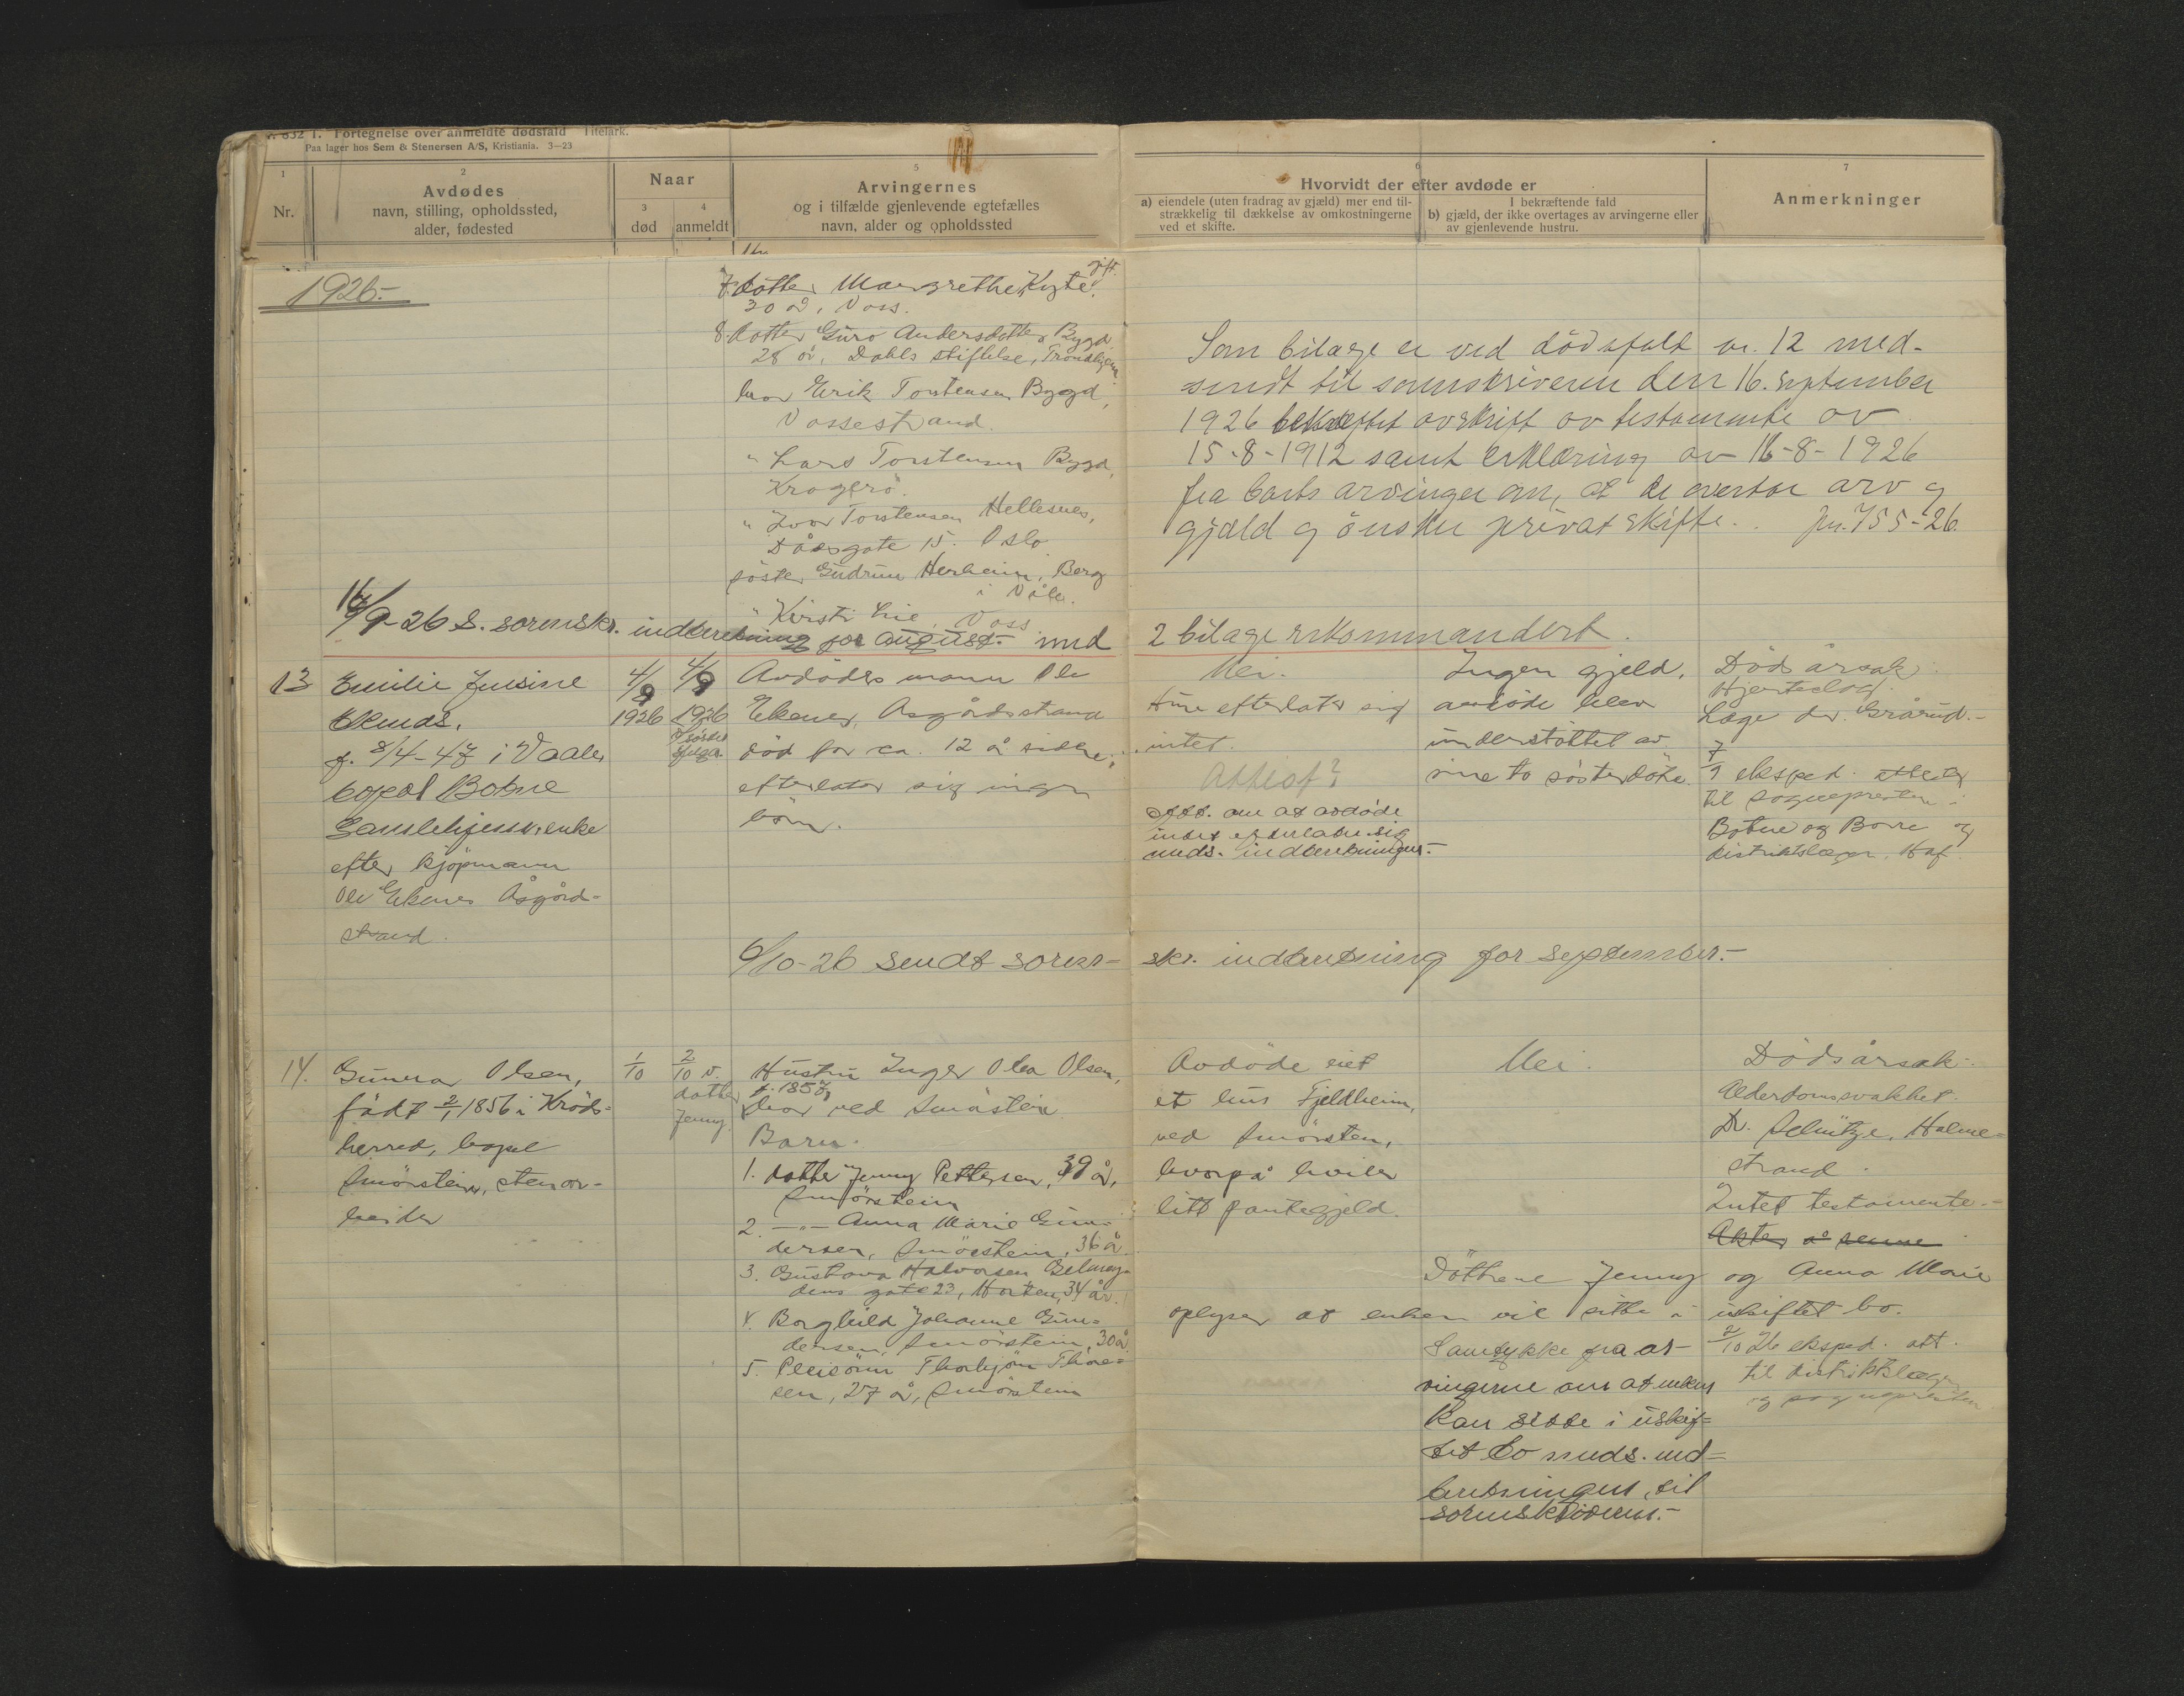 832 1. Fortegnelse over anmeldte dødsfald Titelark.
Paa lager hos Sem & Stenersen A/S, Kristiania. 3—23
1
Nr.
2
Avdødes
navn, stilling, opholdssted,
alder, fødested
Naar
3
død
4
anmeldt
5
Arvingernes
og i tilfælde gjenlevende egtefælles
navn, alder og opholdssted
6
Hvorvidt der efter avdøde er
a) eiendele (uten fradrag av gjæld) mer end til-
strækkelig til dækkelse av omkostningerne
ved et skifte.
I bekræftende fald
b) gjæld, der ikke overtages av arvingerne eller
av gjenlevende hustru.
7
Anmerkninger
1926.-
7. datter Margrethe Kyte, gift.
30 å, Voss.
8. datter Guro Andersdotter Bygd
28 år, Dahls stiftelse, Trondhjem
bror Erik Torstensen Bygd,
Vossestrand.
" Lars Torstensen Bygd,
Kragerø.
" Ivar Torstensen Hellesnes,
Dåsgate 15. Oslo
søster Gudrun Herheim, Berg
i Våle.
" Kirsti Lie, Voss
Som bilage er ved dødsfald nr. 12 med-
sendt til sorenskriveren den 16. september
1926 bekræftet avskrift av testamente av
15-8-1912 samt erklæring av 16-8-1926
fra boets arvinger om, at de overtar arv og
gjæld og ønsker privat skifte. jnr. 755-26.
16/9-26 S. sorenskr. indberetning for august.- med 2 bilage rekommandert.
13
Emilie Jensine
Ekenes,
f. 8/4-47 i Vaale,
bopæl Botne
Gamlehjem, enke
efter kjøpmann
Ole Ekenes Åsgård-
strand.
4/9
1926
4/9
1926
Avdødes mann Ole
Ekenes, Åsgårdstrand
død for ca. 12 år siden,
efterlater sig ingen
børn.
Nei.
Hun efterlater sig
intet.
Attest?
Att. om at avdøde
intet efterlater sig
meds. indberetningen.-
Ingen gjeld,
avdøde blev
understøttet av
sine to søsterdøtre.
Dødsårsak
Hjerteslag.
Læge dr. Grårud.-
7/9 eksped. attester
til sogneprestene i
Botne og Borre og
distriktslægen. Haf.
6/10-26 sendt sorens-skr. indberetning for september.-
14.
Gunnar Olsen,
født 2/1 1856 i Krøds-
herred, bopæl
Smørstein, stenar-
beider
1/10
2/10 v.
datter
Jenny.
Hustru Inger Olea Olsen,
f. 1857,
bor ved Smørstein
Barn.
1. datter Jenny Pettersen, 39 å,
Smørstein
2. —"— Anna Marie Gun-
dersen, Smørstein, 36 å.
3. Gustava Halvorsen
gate 23, Horten, 34 år.
4. Borghild Johanne Gun-
dersen, Smørstein, 30 å.
5. Pleiesønn Thorbjørn Thore-
sen, 27 å, Smørstein
Avdøde eiet
et hus Fjeldheim,
ved Smørstein,
hvorpå hviler
litt pantegjeld.
Nei.
Dødsårsak:
Alderdomssvakhet.
Dr. Schützge, Holme-
strand.
Intet testamente.-
Akter å
Døttrene Jenny og Anna Marie
oplyser at enken vil sitte i uskiftet bo.
Samtykke fra ar-
vingerne om at enken
kan sitte i uskif-
tet bo meds. ind-
beretningen, til
sorenskriveren.-
2/10 26 eksped. att.
til distriktslægen
og sognepresten